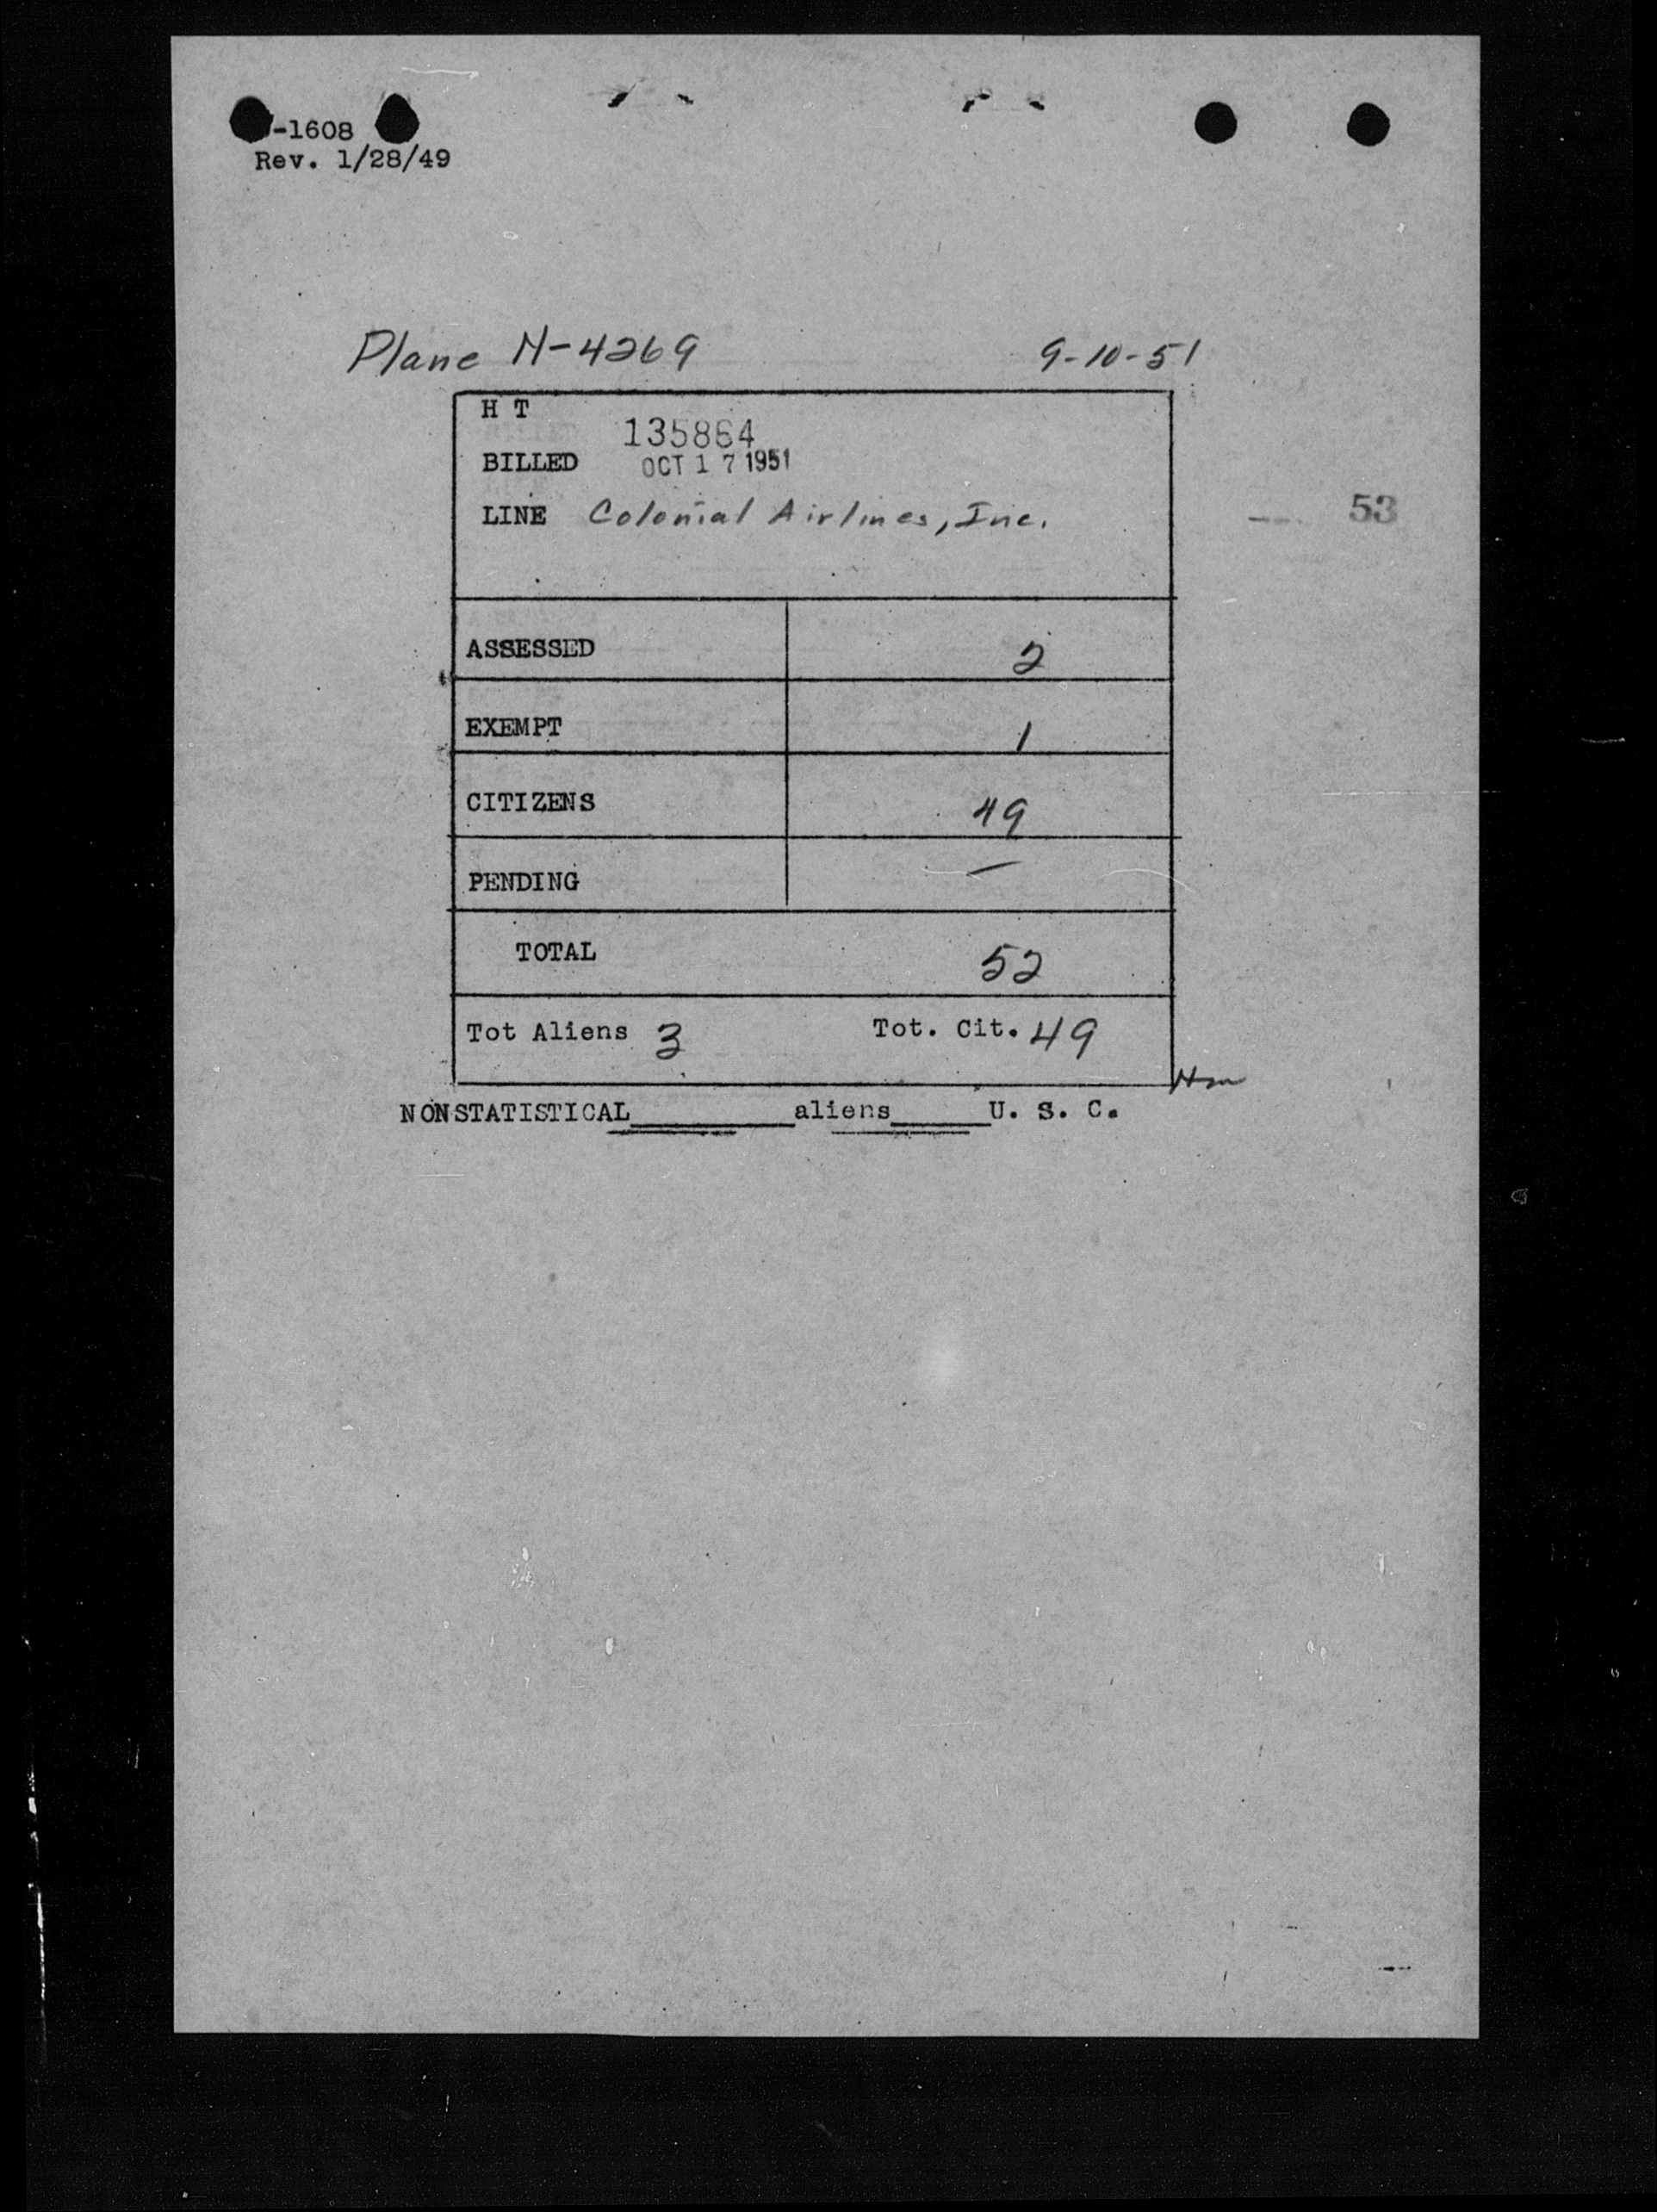 -1608
Rev. 1/28/49
Plane N-4269 9-10-51
H T
135864
BILLED OCT 17 1951
LINE Colonial Airlines, Inc.
53
ASSESSED 2
EXEMPT 1
CITIZENS 49
PENDING —
TOTAL 52
Tot Aliens 3 Tot. Cit. 49
NONSTATISTICAL__________aliens______U. S. C.